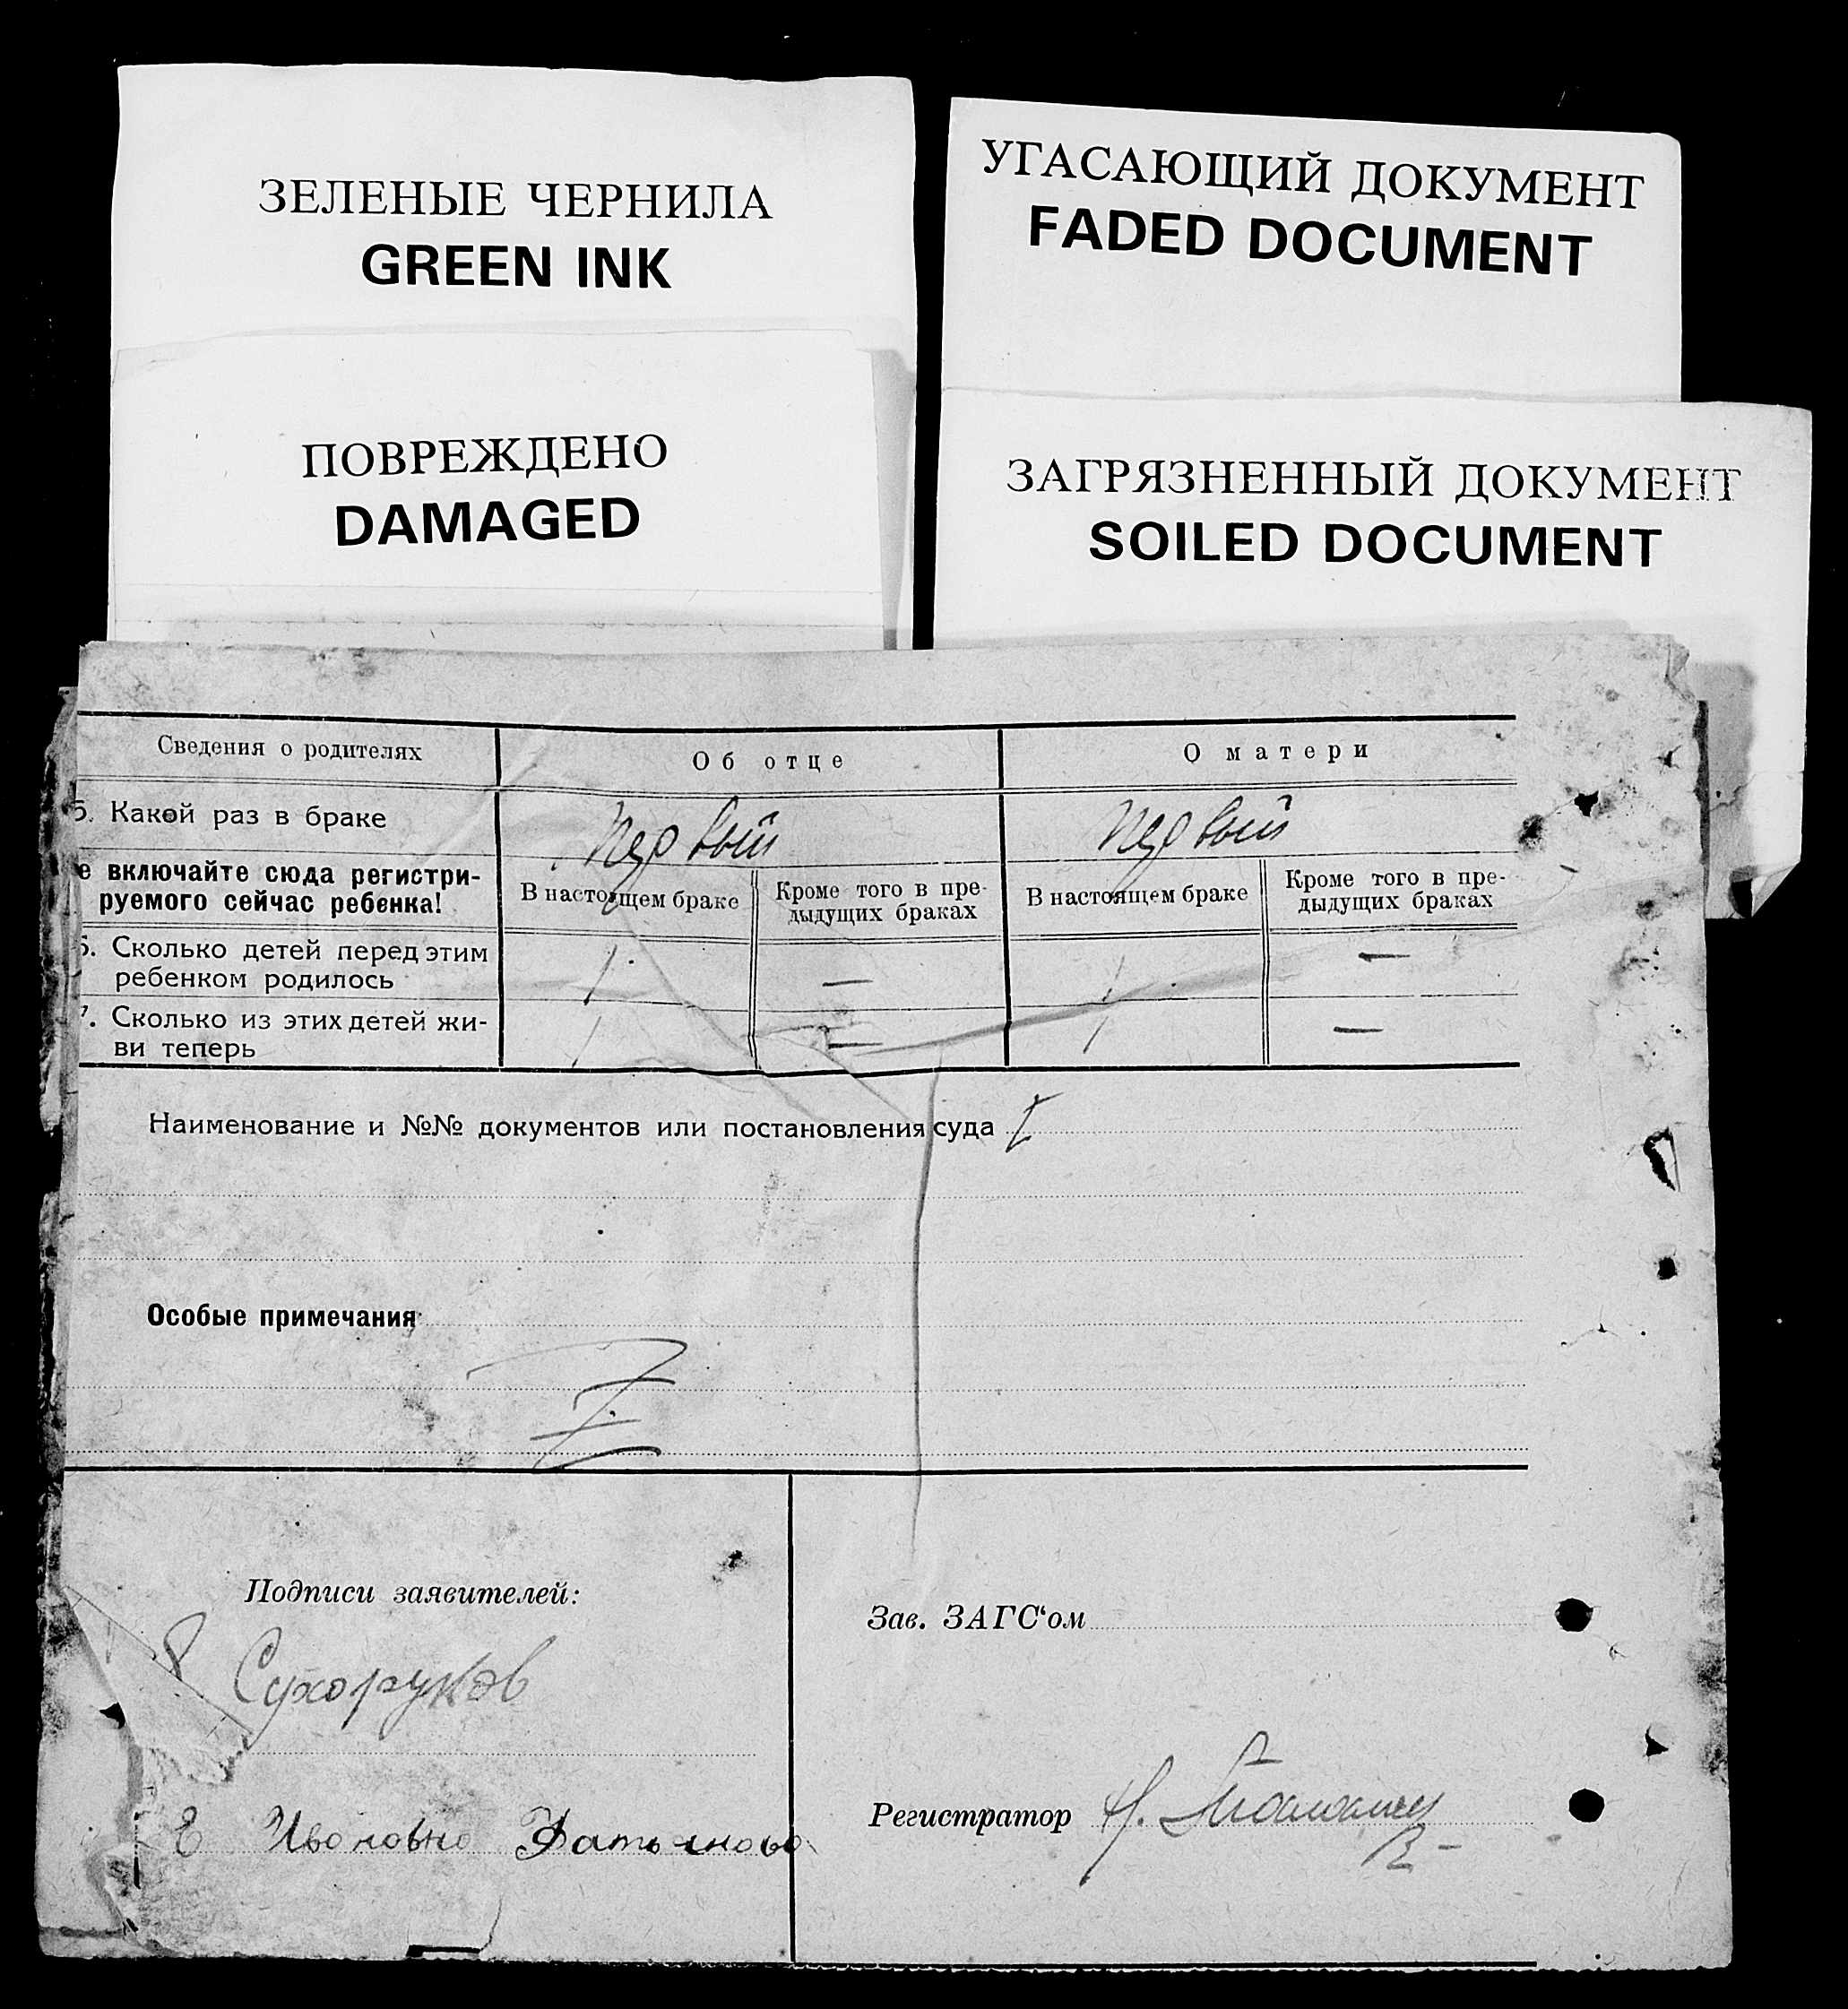 ЗЕЛЕНЫЕ ЧЕРНИЛА
GREEN INK
УГАСАЮЩИЙ ДОКУМЕНТ
FADED DOCUMENT
ПОВРЕЖДЕНО
DAMAGED
ЗАГРЯЗНЕННЫЙ ДОКУМЕНТ
SOILED DOCUMENT
Сведения о родителях
Об отце
О матери
5. Какой раз в браке
первый
первый
е включайте сюда регистри-
руемого сейчас ребенка!
В настоящем браке
Кроме того в пре-
дыдущих браках
В настоящем браке
Кроме того в пре-
дыдущих браках
6. Сколько детей перед этим
ребенком родилось
1
—
1
—
7. Сколько из этих детей жи-
ви теперь
1
—
1
—
Наименование и №№ документов или постановления суда
Особые примечания
Подписи заявителей:
Сухоруков
Е
Зав. ЗАГС‘ом
Регистратор